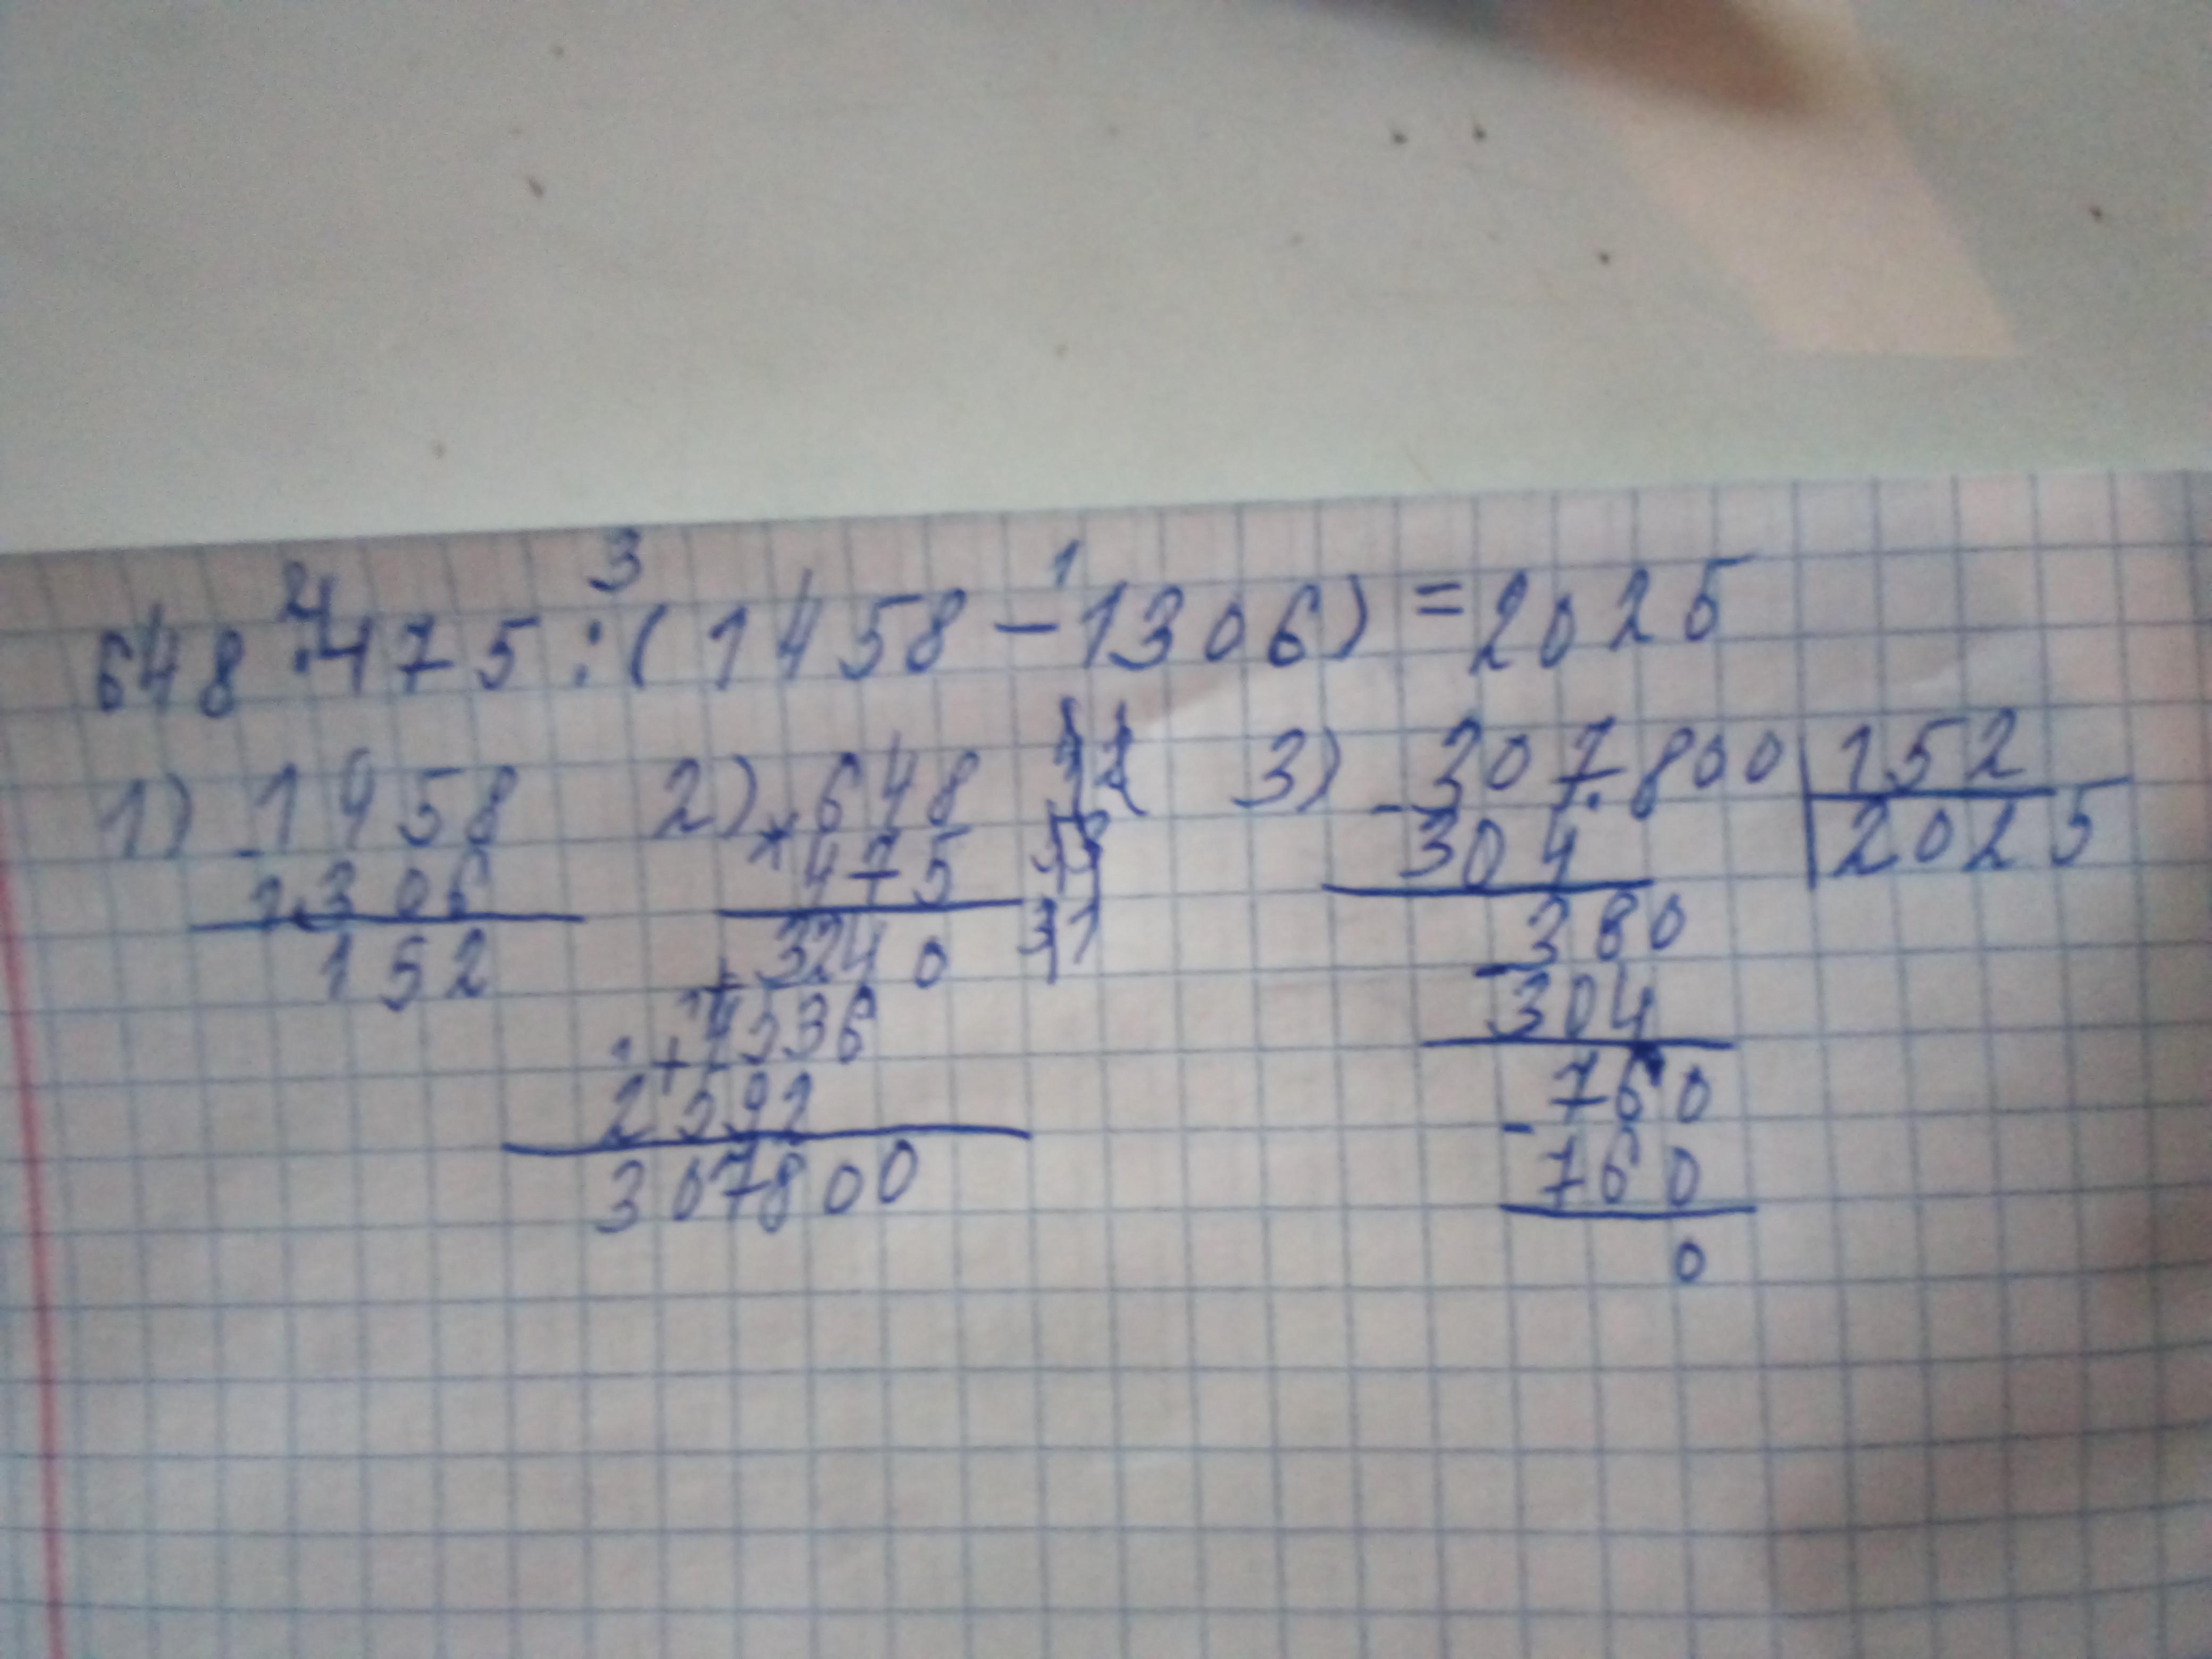 648 · 475 : (1458 − 1306) = 2025
2 3 1
1) - 1458
1306
152
2) × 648
475
+ 3240
+ 4536
2592
307800
3) - 307800 | 152
304 | 2025
- 380
304
- 760
760
0